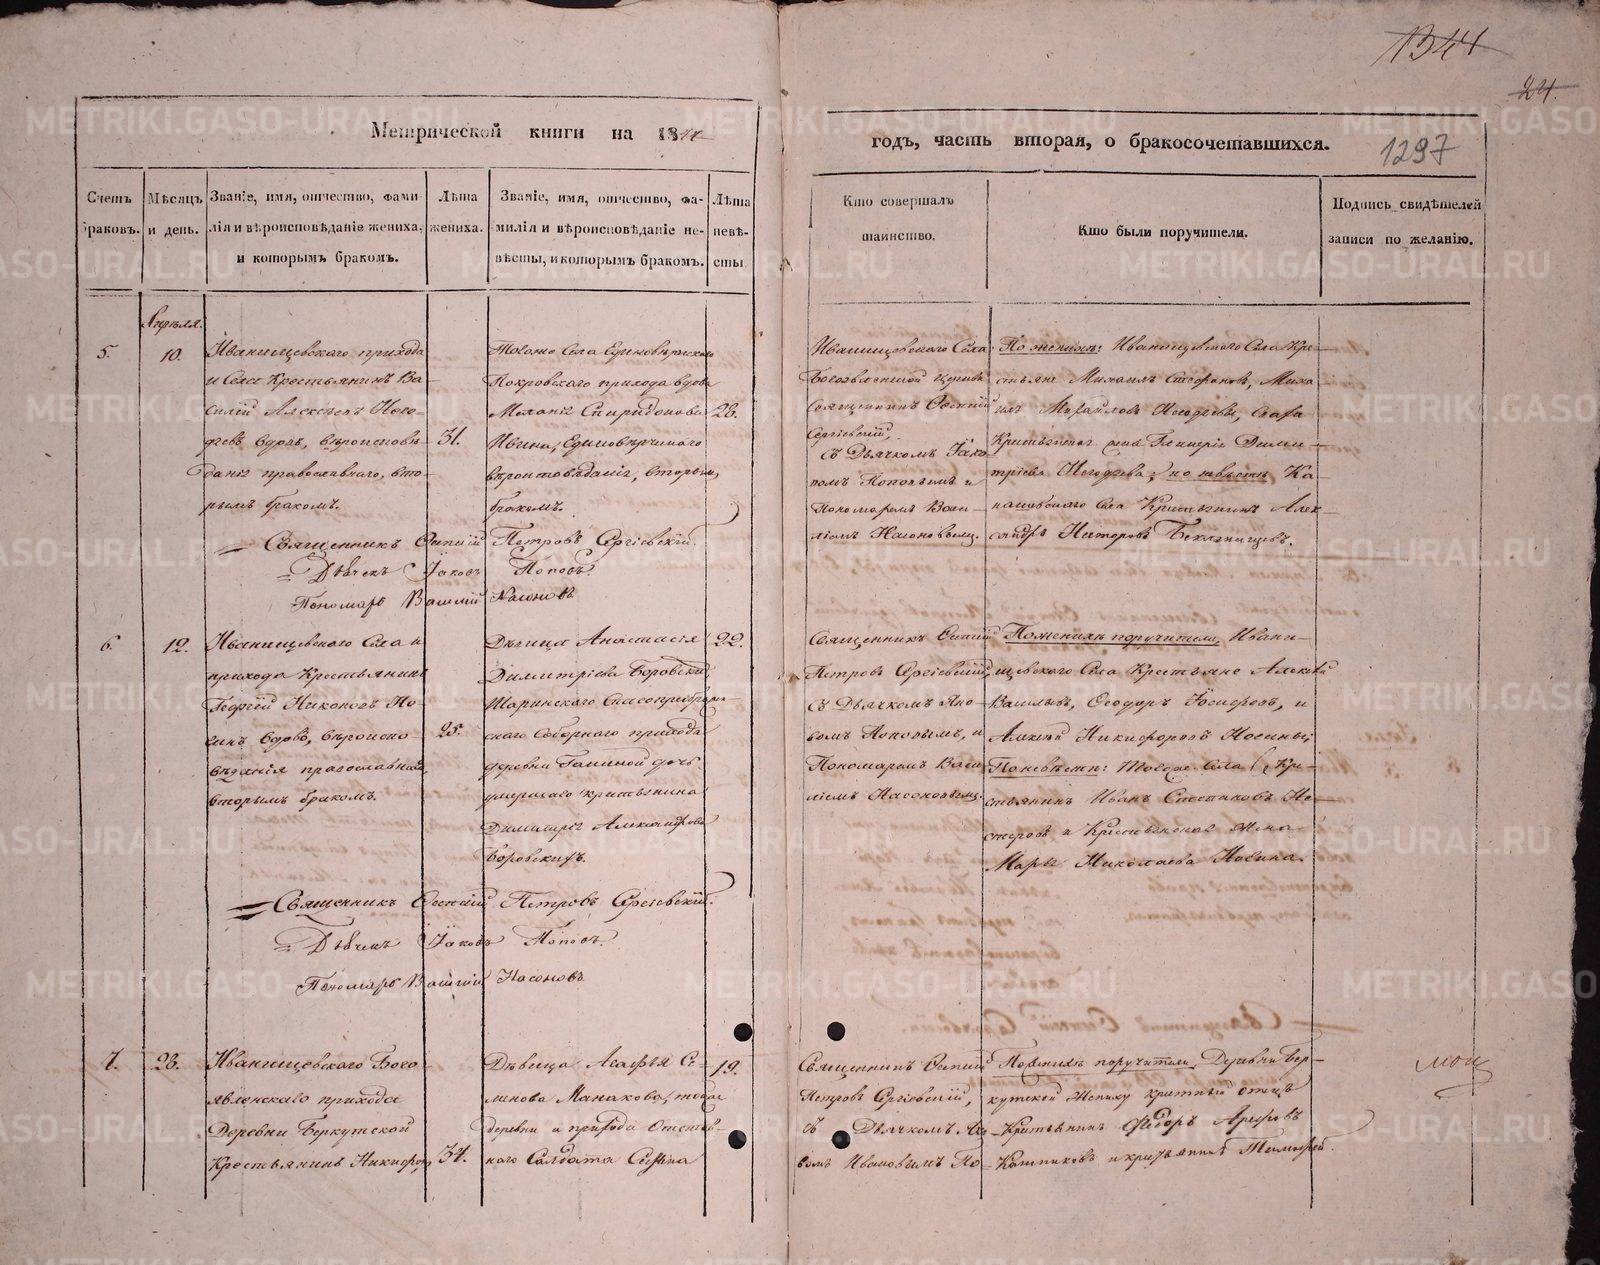 1344
24.
1297
Метрической книги на 18
годъ, часть вторая, о бракосочетавшихся.
Счетъ браковъ.
Мѣсяцъ и день.
Званіе, имя, отчество, фами-
лія и вѣроисповѣданіе жениха,
и которымъ бракомъ.
Лѣта
жениха.
Званіе, имя, отчество, фа-
милія и вѣроисповѣданіе не-
вѣсты, и которымъ бракомъ.
Лѣта
невѣ-
сты
Кто совершалъ
таинство.
Кто были поручители.
Подпись свидѣтелей
записи по желанію.
Апрѣля.
5.
10.
Иванищевскаго прихода
и села Крестьянинъ Ва-
силій Алексѣевъ
вдовъ, вѣроисповѣ-
данія православнаго, вто-
рымъ бракомъ.
31.
Тогоже села Единовѣрческаго
Покровскаго прихода вдова
Меланія Спиридонова
Единовѣрческаго
вѣроисповѣданія, вторымъ
бракомъ.
28.
Иванищевскаго села
Богоявленской церкви
Священникъ
Сергіевскій,
съ Дьячкомъ Яко-
вомъ Поповымъ и
Пономаремъ Васи-
ліемъ Насоновымъ.
По женихѣ: Иванищевскаго села Кре-
стьяне Михаилъ Стефановъ, Миха-
илъ Михайловъ
Крестьянская жена Гликерія Дими-
тріева по невѣстѣ Ка-
села Крестьянинъ Алек-
сандръ
Священникъ Петровъ Сергіевскій.
Дьячекъ Іаковъ Поповъ.
Пономарь Василій Насоновъ
6.
12.
Иванищевскаго села и
прихода Крестьянинъ
Георгій Никоновъ Но-
синъ вдовъ, вѣроиспо-
вѣданія православнаго,
вторымъ бракомъ.
25.
Дѣвица Анастасія
Димитріева Боровскихъ,
Спасопреображен-
скаго Соборнаго прихода
деревни Ганиной дочь
умершаго крестьянина
Димитрія Александрова
Боровскихъ.
22.
Священникъ
Петровъ Сергіевскій,
съ Дьячкомъ Яко-
вомъ Поповымъ, и
Пономаремъ Васи-
ліемъ Насоновымъ.
По женихѣ поручители, Ивани-
щевскаго села Крестьяне Алексѣй
Васильевъ, Ѳеодоръ Іосифовъ, и
Алексѣй Никифоровъ Носины;
По невѣстѣ: Тогоже села Кре-
стьянинъ Иванъ Степановъ Не-
стеровъ и Крестьянская жена
Марѳа Николаева Носина.
Священникъ Петровъ Сергіевскій.
Дьячекъ Іаковъ Поповъ.
Пономарь Василій Насоновъ
7.
28.
Иванищевскаго Бого-
явленскаго прихода
Деревни Беркутской
Крестьянинъ Никифоръ
34.
Дѣвица Агафья Се-
менова Манакова, тойже
деревни и прихода Отстав-
наго Солдата Семена
19.
Священникъ
Петровъ Сергіевскій,
съ Дьячкомъ Яко-
вомъ Ивановымъ По-
По женихѣ поручители, Деревни Бер-
кутской Жениху крестный отецъ
Крестьянинъ Ѳедоръ
и крестьянинъ Тимофей
METRIKI.GASO-URAL.RU